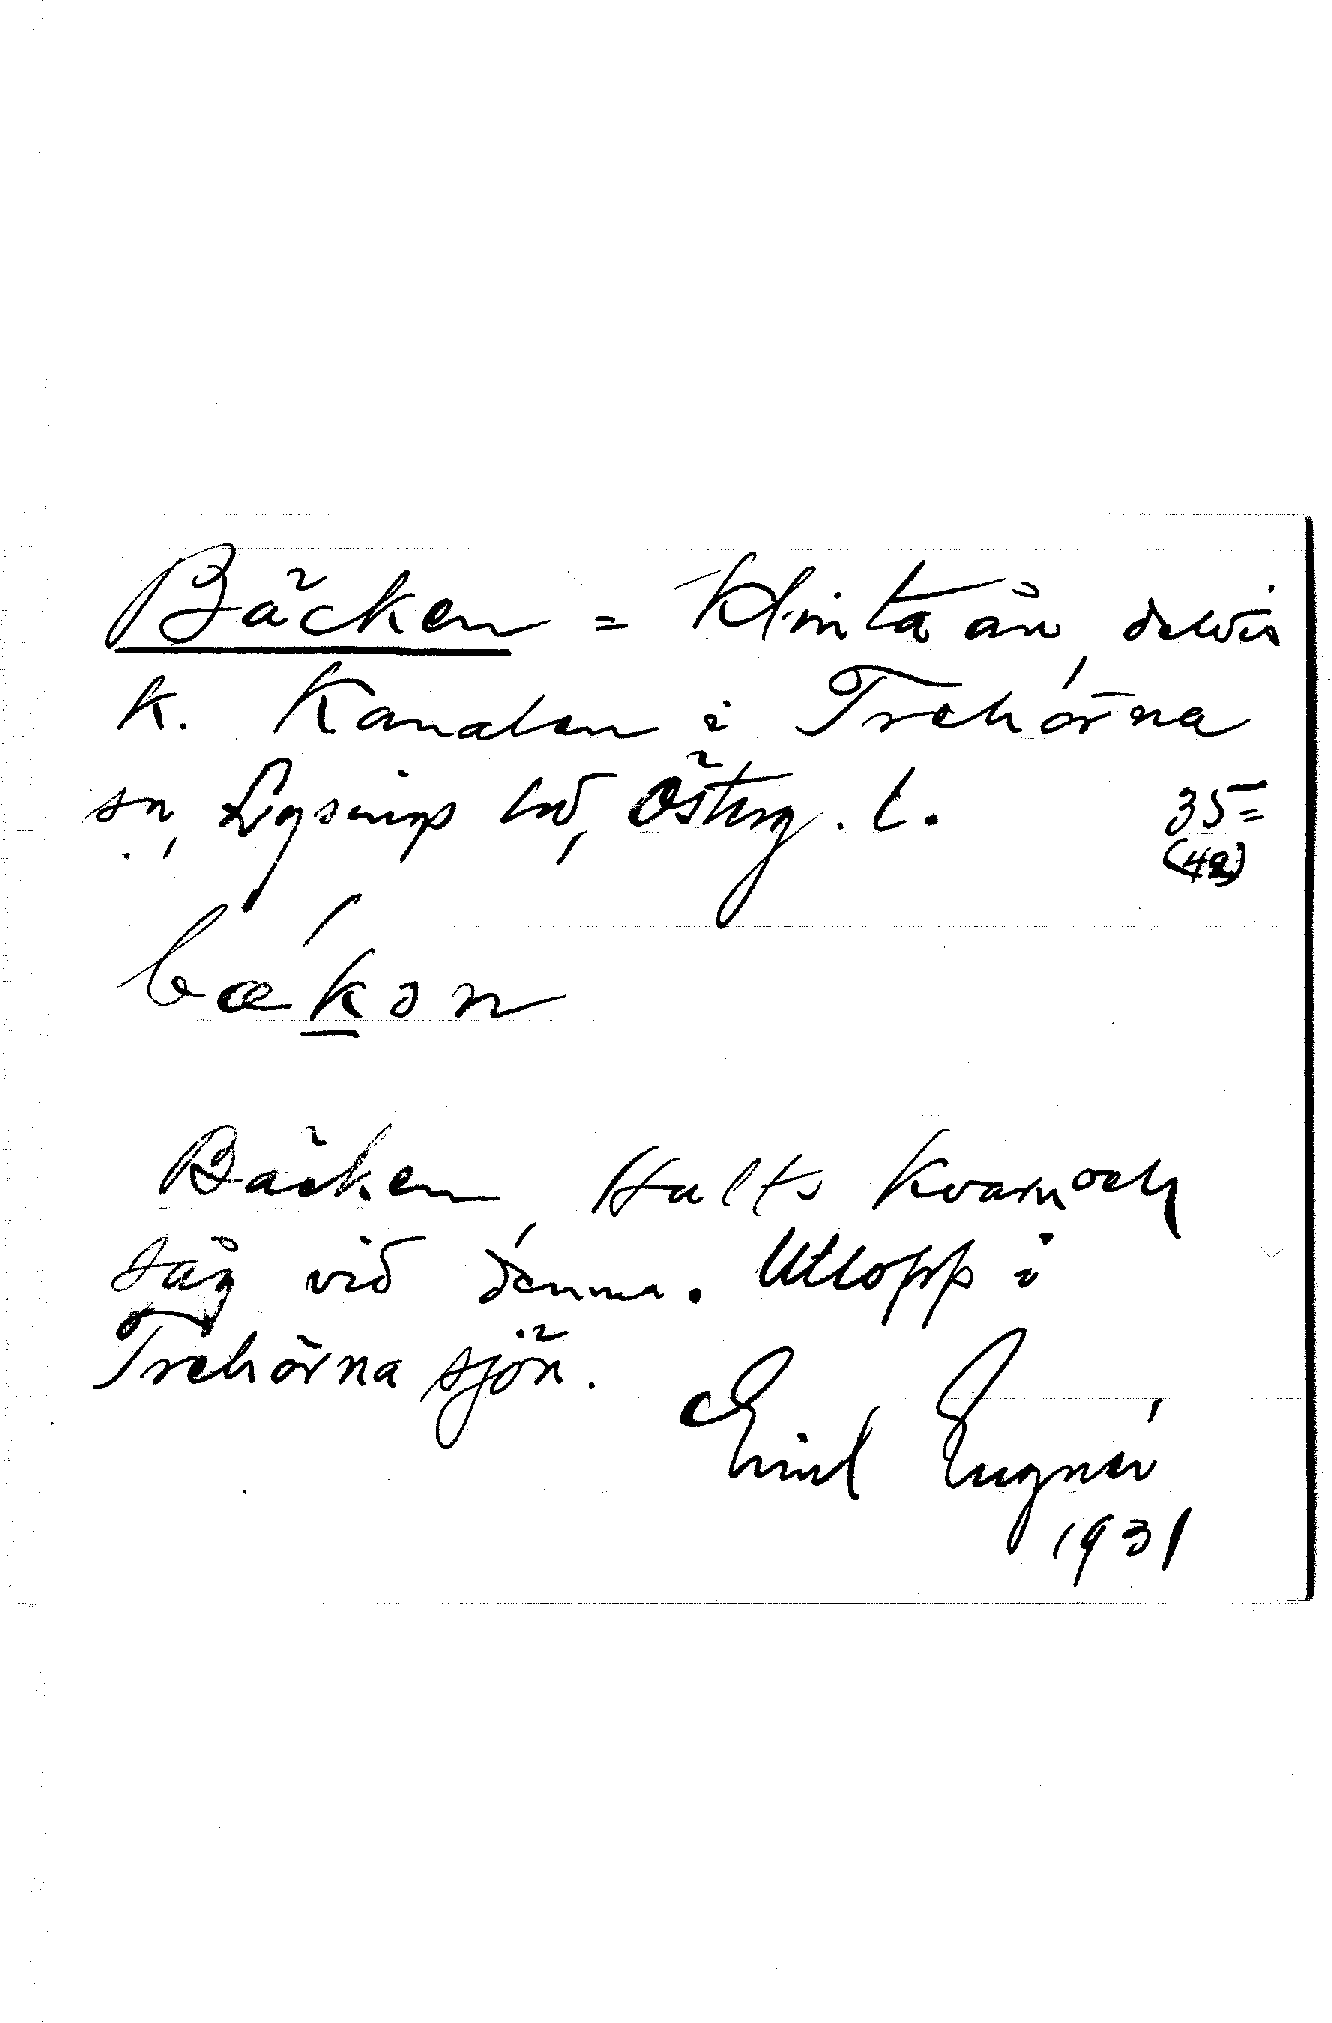 Bäcken = Klinta ån, delvis
k. Kanalen i Trehörna
sn, Lysings hd, Österg. l.
35=
(42)
bækən
Bäcken, Hults kvarn och
såg vid denna. Utlopp i
Trehörna sjön.
Emil Eugnér
1931